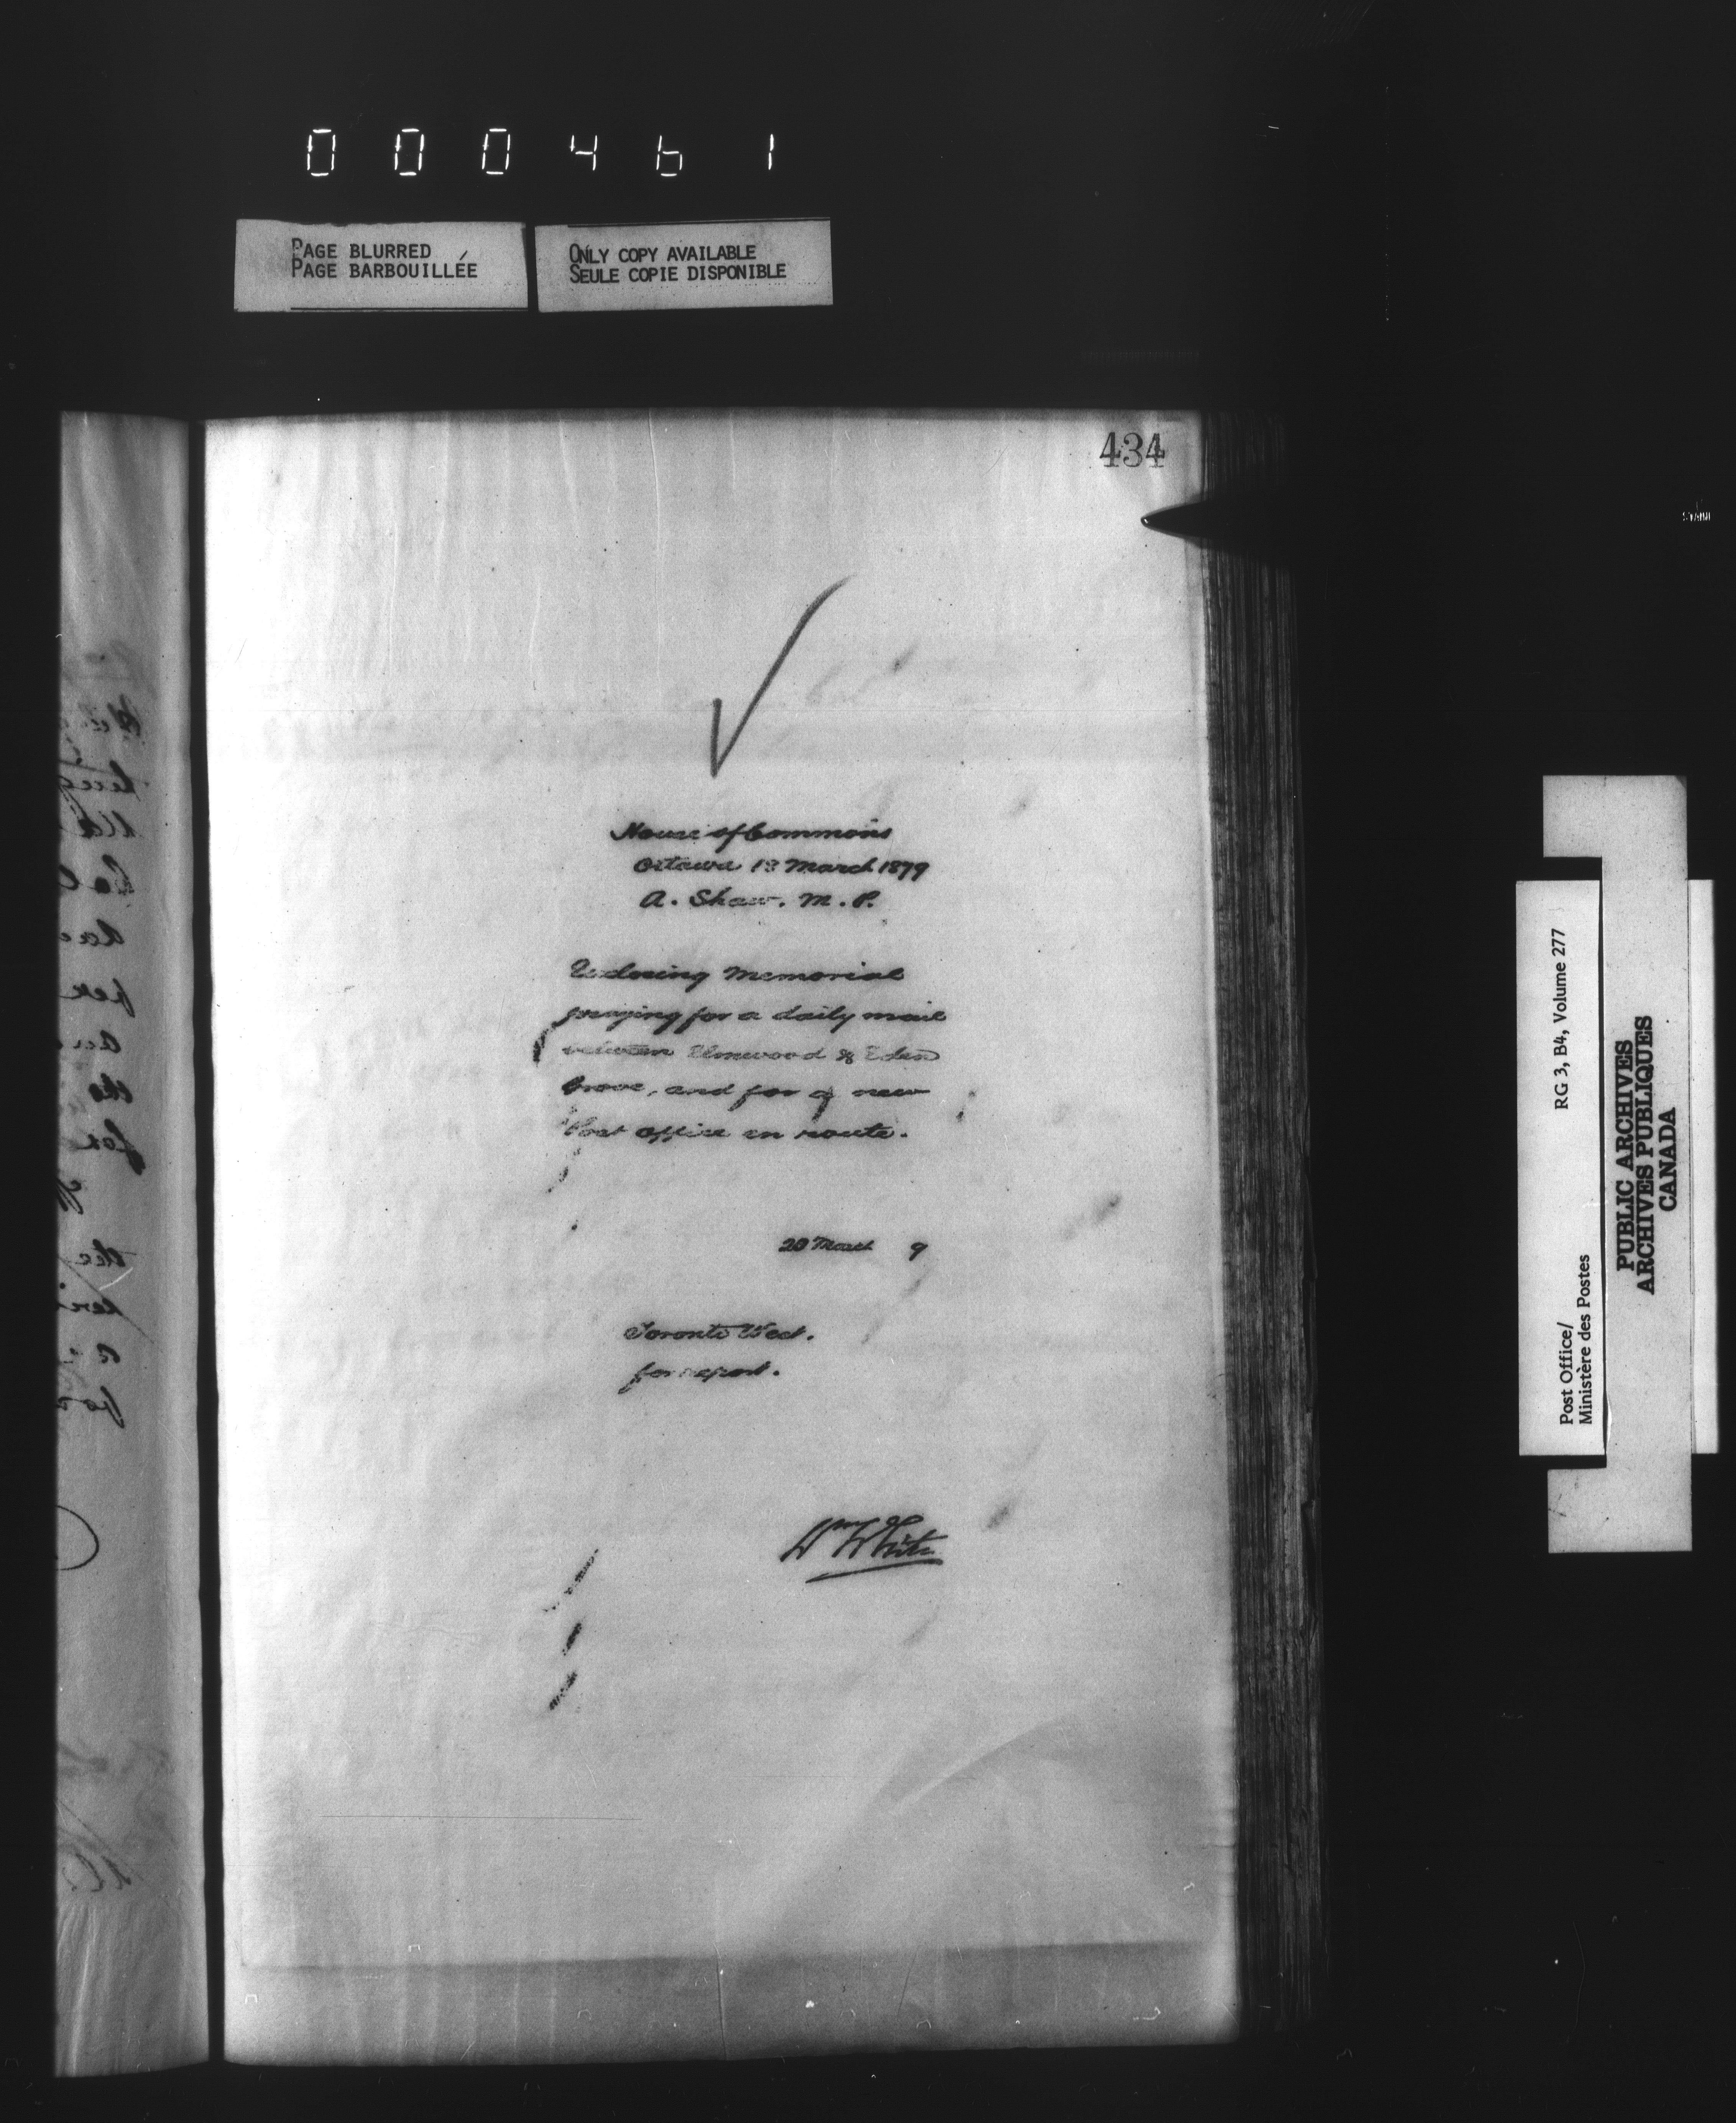 000461
PAGE BLURRED
PAGE BARBOUILLÉE
ONLY COPY AVAILABLE
SEULE COPIE DISPONIBLE
434
House of Commons
Ottawa 18 March 1879
A. Shaw. M. P.
Enclosing Memorial
praying for a daily mail
between Elmwood & Eden
Grove, and for a new
Post Office en route.
20 March 9
Toronto West.
for report.
Wm White
Post Office/
Ministère des Postes
RG 3, B4, Volume 277
PUBLIC ARCHIVES
ARCHIVES PUBLIQUES
CANADA